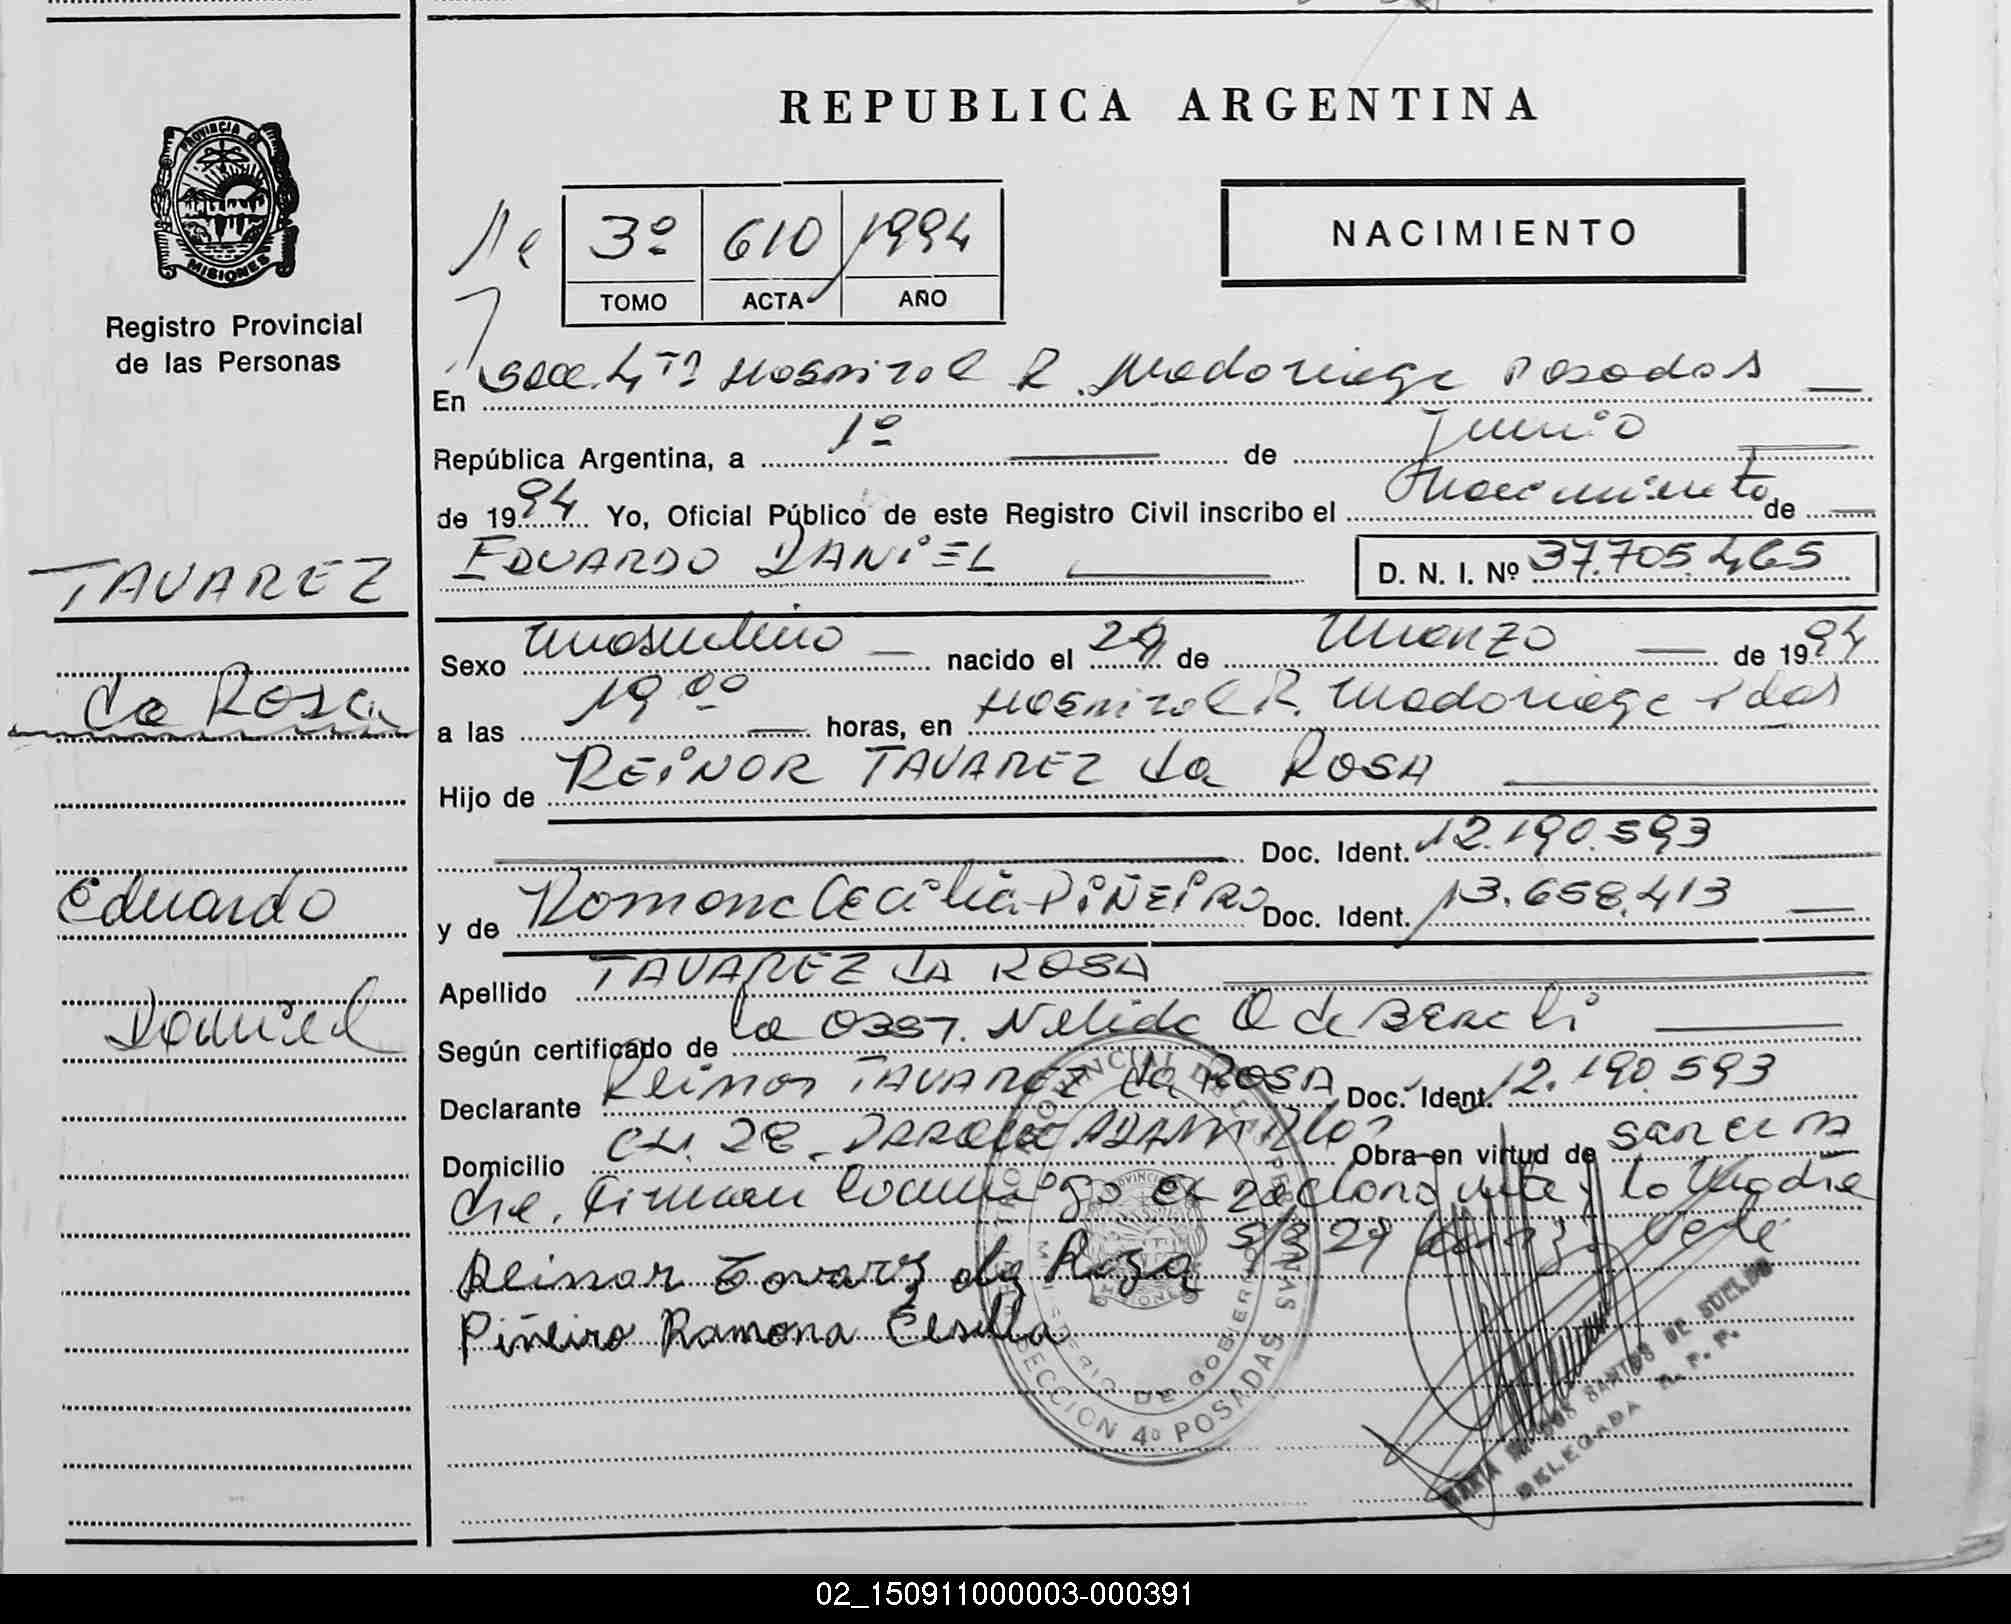 REPUBLICA ARGENTINA
PROVINCIA DE MISIONES
Registro Provincial
de las Personas
3º 610 1994
TOMO ACTA AÑO
NACIMIENTO
En Secc. 4ta Hospital R. Madariaga Posadas
República Argentina, a 1º de Junio
de 1994 Yo, Oficial Público de este Registro Civil inscribo el Nacimiento de
EDUARDO DANIEL D. N. I. Nº 37.705.465
TAVAREZ
da Rosa
Eduardo
Daniel
Sexo masculino nacido el 29 de Marzo de 1994
a las 19 00 horas, en Hospital R. Madariaga Pdas
Hijo de REINOR TAVAREZ da ROSA
Doc. Ident. 12.190.593
y de Ramona Cecilia PIÑEIRO Doc. Ident. 13.658.413
Apellido TAVAREZ dA ROSA
Según certificado de la OBST. Nelida O de
Declarante Reinor TAVAREZ da ROSA Doc. Ident. 12.190.593
Domicilio CH. 28 Obra en virtud de
Firman conmigo el declarante y la Madre
S/B 29 Vale
Reinor Tavarez da Roza
Piñeiro Ramona Cesilla
REGISTRO PROVINCIAL DE LAS PERSONAS
MINISTERIO DE GOBIERNO
SECCION 4º POSADAS
SANTOS DE SUELDO
DELEGADA R. P. P.
02_150911000003-000391